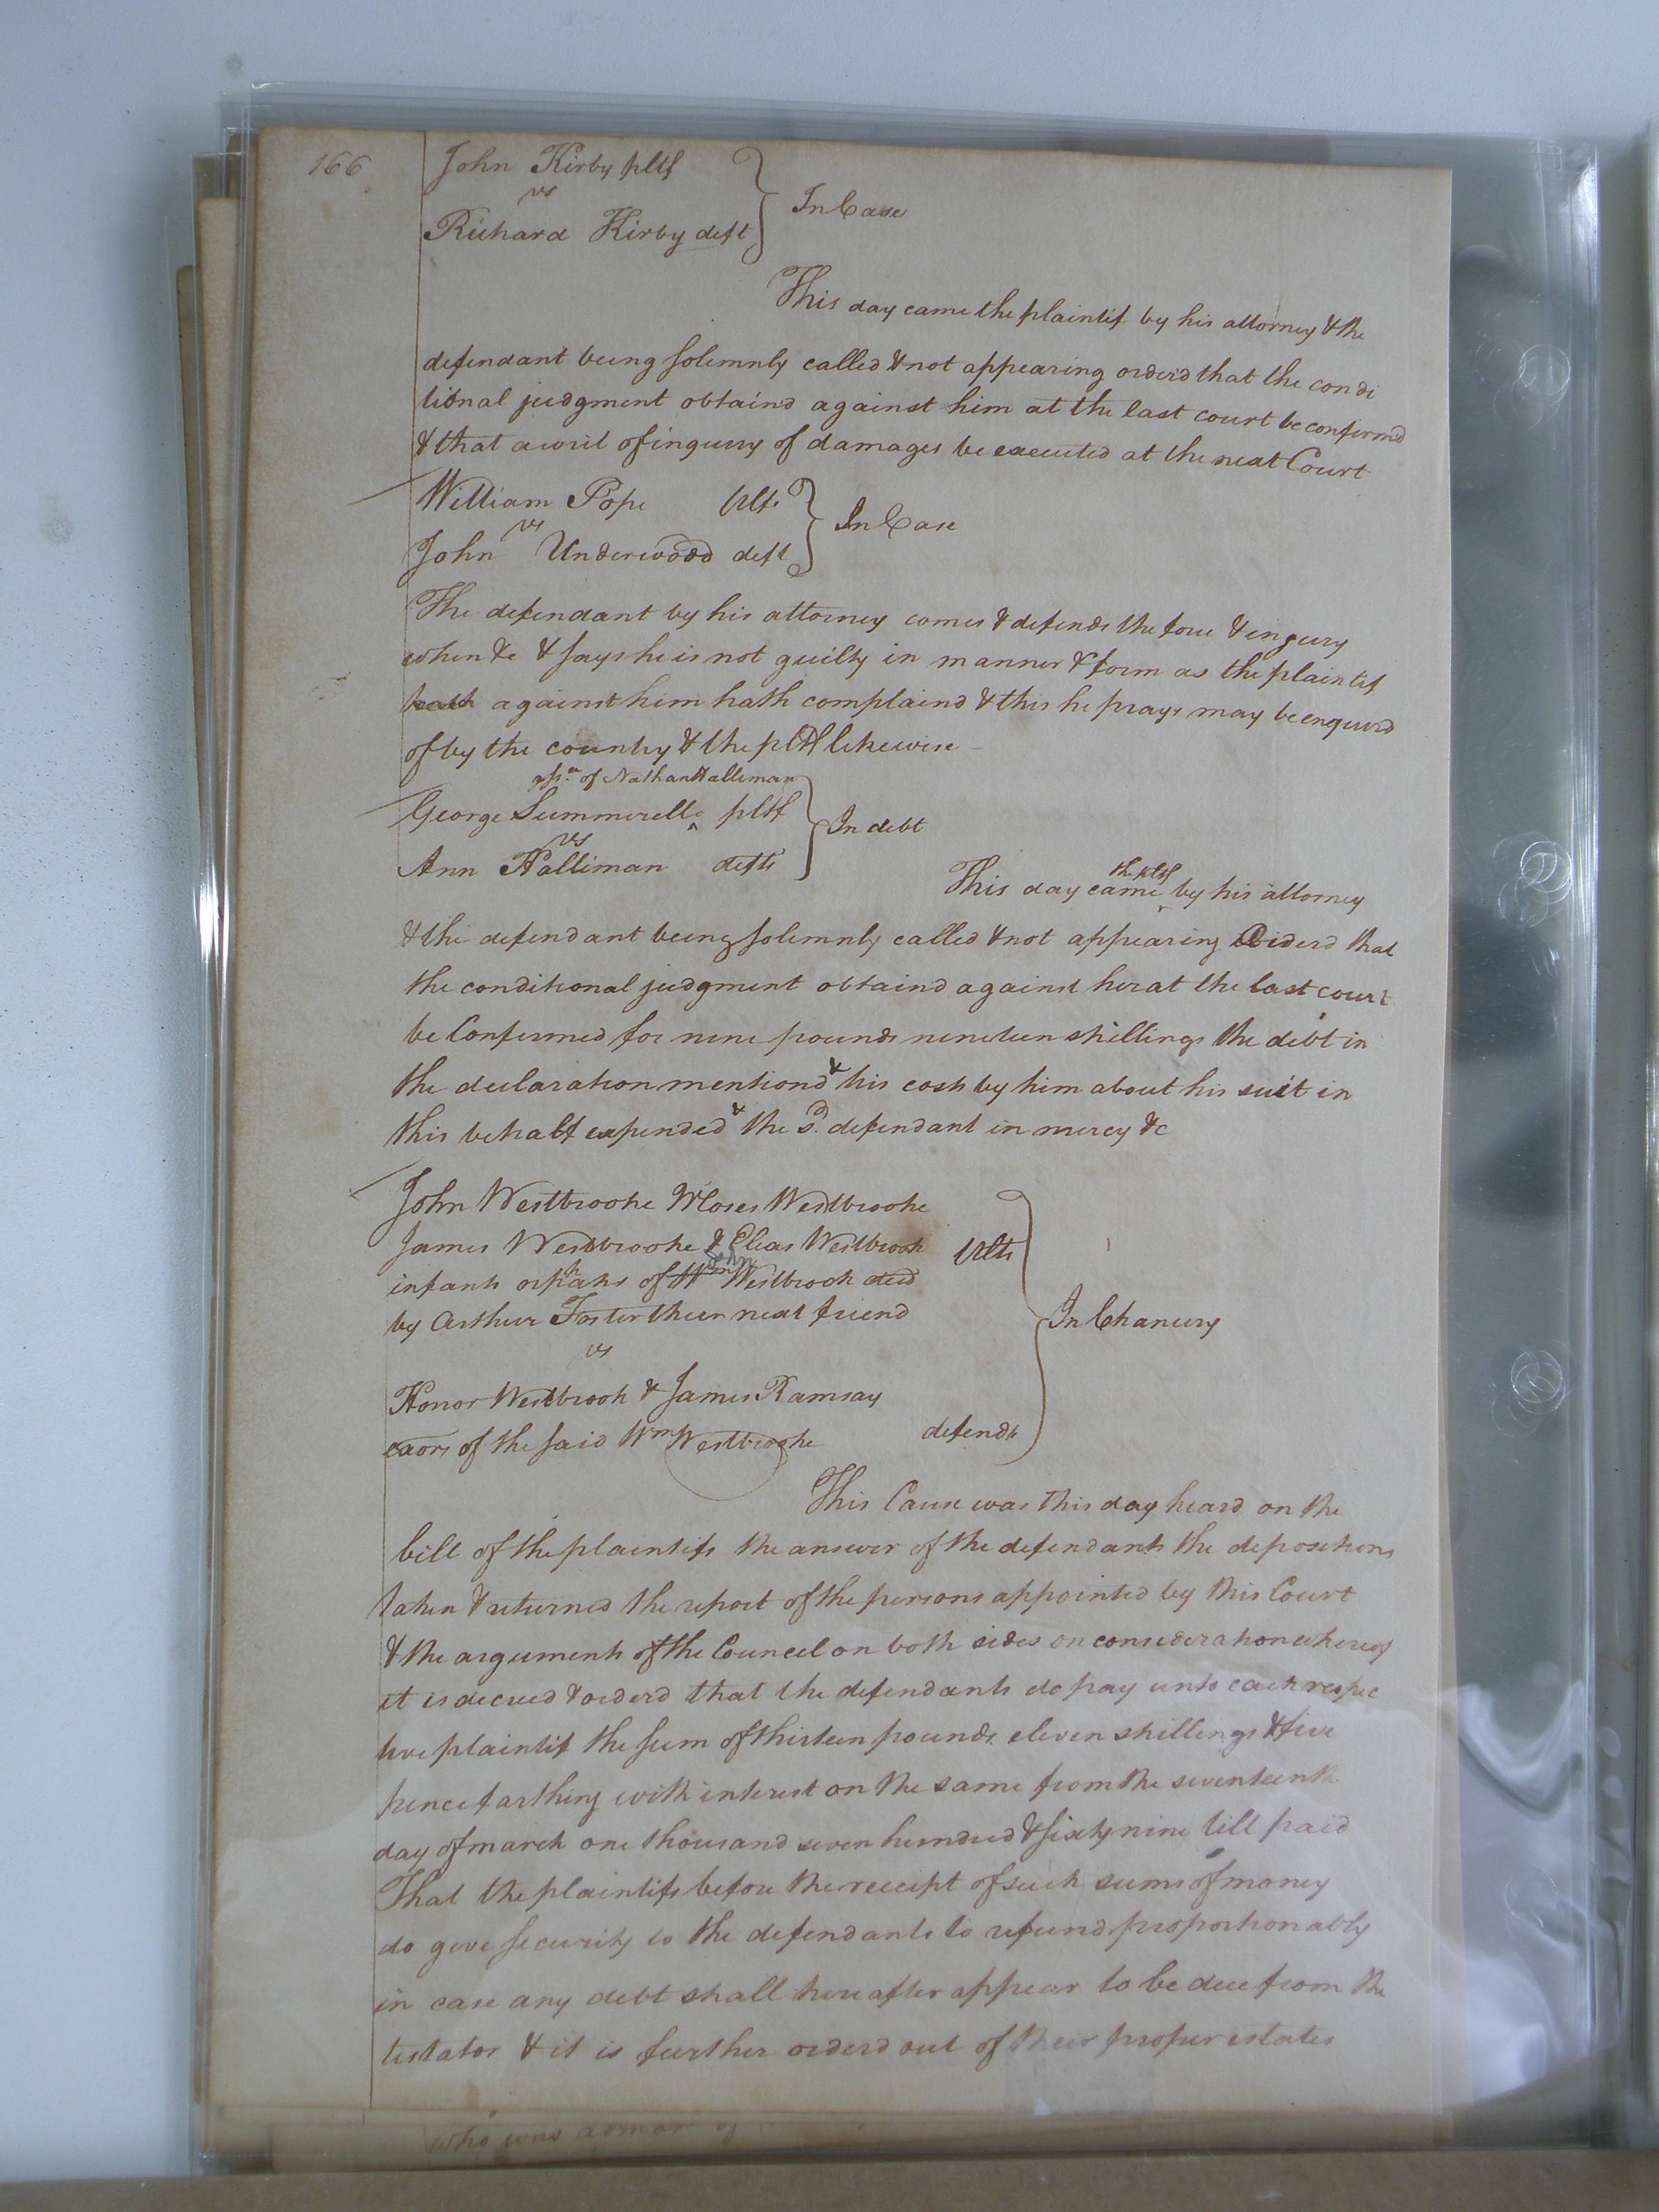 166
John Kirby pltf
vs
Richard Kirby deft
In Case
This day came the plaintif by his attorney & the
defendant being solemnly called & not appearing orderd that the condi
tional judgment obtaind against him at the last court be confirmd
& that a writ of inquiry of damages be executed at the next Court
William Pope pltf
vs
John Underwood deft
In Case
The defendant by his attorney comes & defends the force & injury
when &c & says he is not guilty in manner & form as the plaintif
hath against him hath complaind & this he prays may be enquird
of by the country & the pltf likewise
asse. of Nathan Halliman
George Summerell ‸ pltf
vs
Ann Halliman deft
In debt
the pltf
This day came ‸ by his attorney
& the defendant being solemnly called & not appearing Orderd that
the conditional judgment obtaind against her at the last court
be Confirmed for nine pounds nineteen shillings the debt in
the declaration mentiond & his costs by him about his suit in
this behalf expended & the sd. defendant in mercy &c
John Westbrooke Moses Westbrooke
James Westbrooke & Elias Westbrook plts
infants orphans of Wm John Westbrook decd
by Arthur Foster their next friend
vs
In Chancery
Honor Westbrook & James Ramsay
exors of the said Wm Westbrooke defends
This Cause was this day heard on the
bill of the plaintifs the answer of the defendants the depositions
taken & returned the report of the persons appointed by this Court
& the arguments of the Councel on both sides on consideration whereof
it is decreed & orderd that the defendants do pay unto each respec
tive plaintif the sum of thirteen pounds eleven shillings & five
pence farthing with interest on the same from the seventeenth
day of march one thousand seven hundred & sixty nine till paid
That the plaintifs before the receipt of such sums of money
do give security to the defendants to refund proportionably
in case any debt shall hereafter appear to be due from the
testator & it is further orderd out of their proper estates
who was